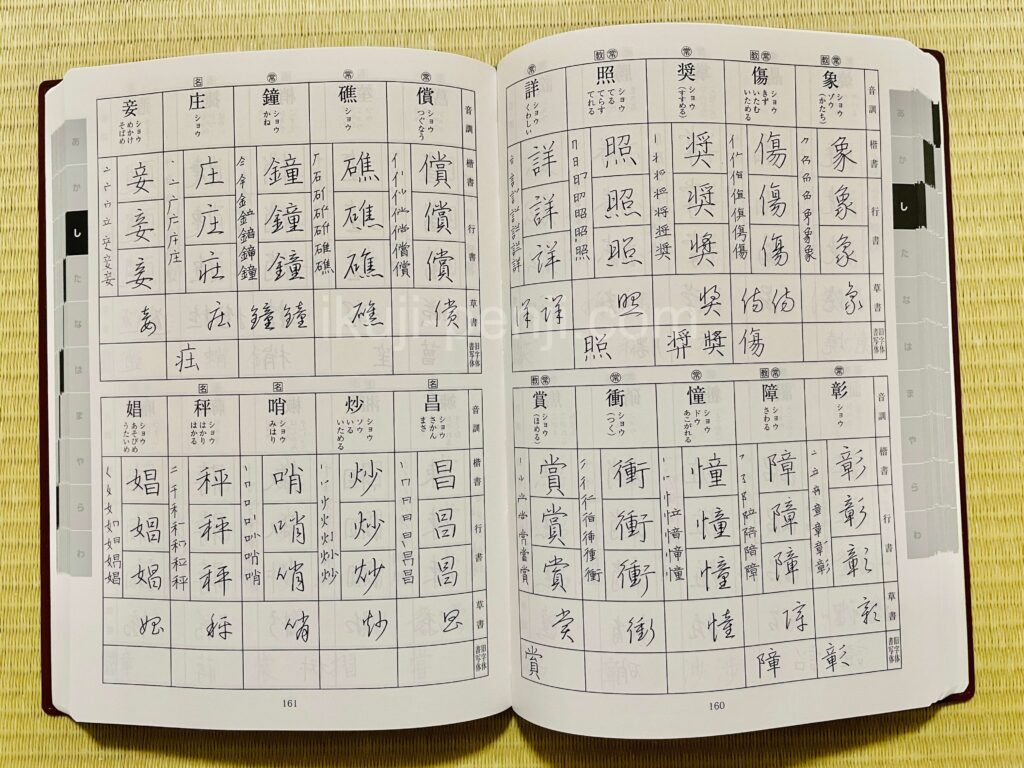 音訓
楷書
行書
草書
旧字体
書写体
教常
象
ショウ
ゾウ
(かたち)
象
象
象
象
教常
傷
ショウ
きず
いたむ
いためる
傷
傷
傷
傷
傷
傷
常
奨
ショウ
(すすめる)
奨
奨
奨
奨
奬
教常
照
ショウ
てる
てらす
てれる
照
照
照
照
照
常
詳
ショウ
くわしい
詳
詳
詳
詳
詳
音訓
楷書
行書
草書
旧字体
書写体
常
彰
ショウ
彰
彰
彰
彰
彰
教常
障
ショウ
さわる
障
障
障
障
障
常
憧
ショウ
ドウ
あこがれる
憧
憧
憧
憧
常
衝
ショウ
(つく)
衝
衝
衝
衝
教常
賞
ショウ
(ほめる)
賞
賞
賞
賞
賞
160
音訓
楷書
行書
草書
旧字体
書写体
常
償
ショウ
つぐなう
償
償
償
償
常
礁
ショウ
礁
礁
礁
礁
常
鐘
ショウ
かね
鐘
鐘
鐘
鐘
鐘
名
庄
ショウ
庄
庄
庄
庄
妾
ショウ
めかけ
そばめ
妾
妾
妾
妾
音訓
楷書
行書
草書
旧字体
書写体
名
昌
ショウ
さかん
まさ
昌
昌
昌
昌
炒
ショウ
ソウ
いる
いためる
炒
炒
炒
炒
名
哨
ショウ
みはり
哨
哨
哨
哨
名
秤
ショウ
はかり
はかる
秤
秤
秤
秤
娼
ショウ
あそびめ
うたいめ
娼
娼
娼
娼
161
あ
か
し
た
な
は
ま
や
ら
わ
あ
か
し
た
な
は
ま
や
ら
わ
ikuji-penji.com